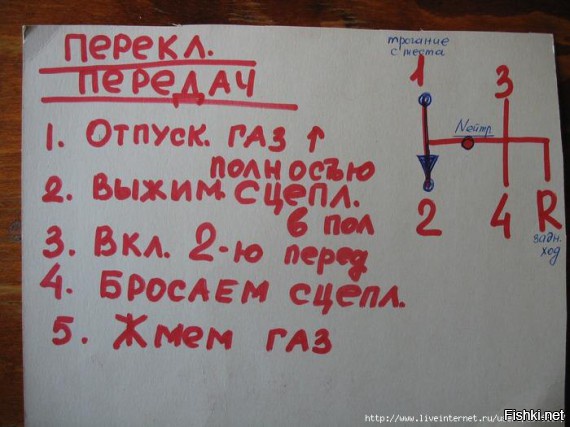 ПЕРЕКЛ.
ПЕРЕДАЧ
1. ОТПУСК. ГАЗ ↑
ПОЛНОСТЬЮ
2. ВЫЖИМ. СЦЕПЛ.
В ПОЛ
3. ВКЛ. 2-Ю ПЕРЕД
4. БРОСАЕМ СЦЕПЛ.
5. ЖМЕМ ГАЗ
трогание
с места
1 3
Nейтр
2 4 R
задн.
ход
Fishki.net
http://www.liveinternet.ru/